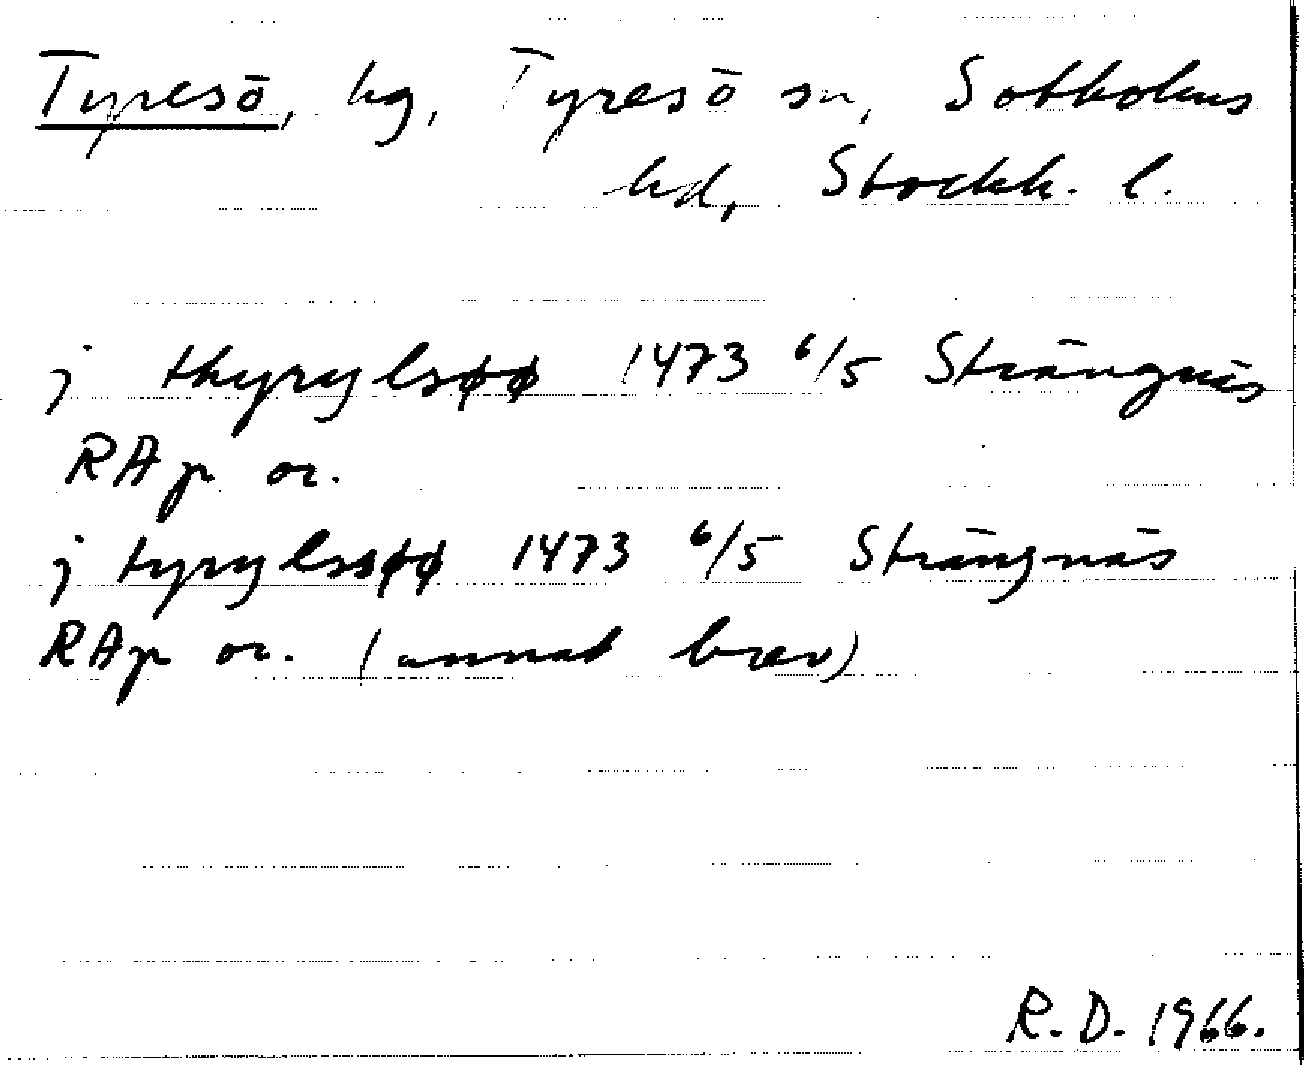 Tyresö, hg, Tyresö sn, Sotholms
hd, Stockh. l.
j thyrylsøø 1473 6/5 Strängnäs
RAp or.
j tyrylssøø 1473 6/5 Strängnäs
RAp or. (annat brev)
R.D. 1966.